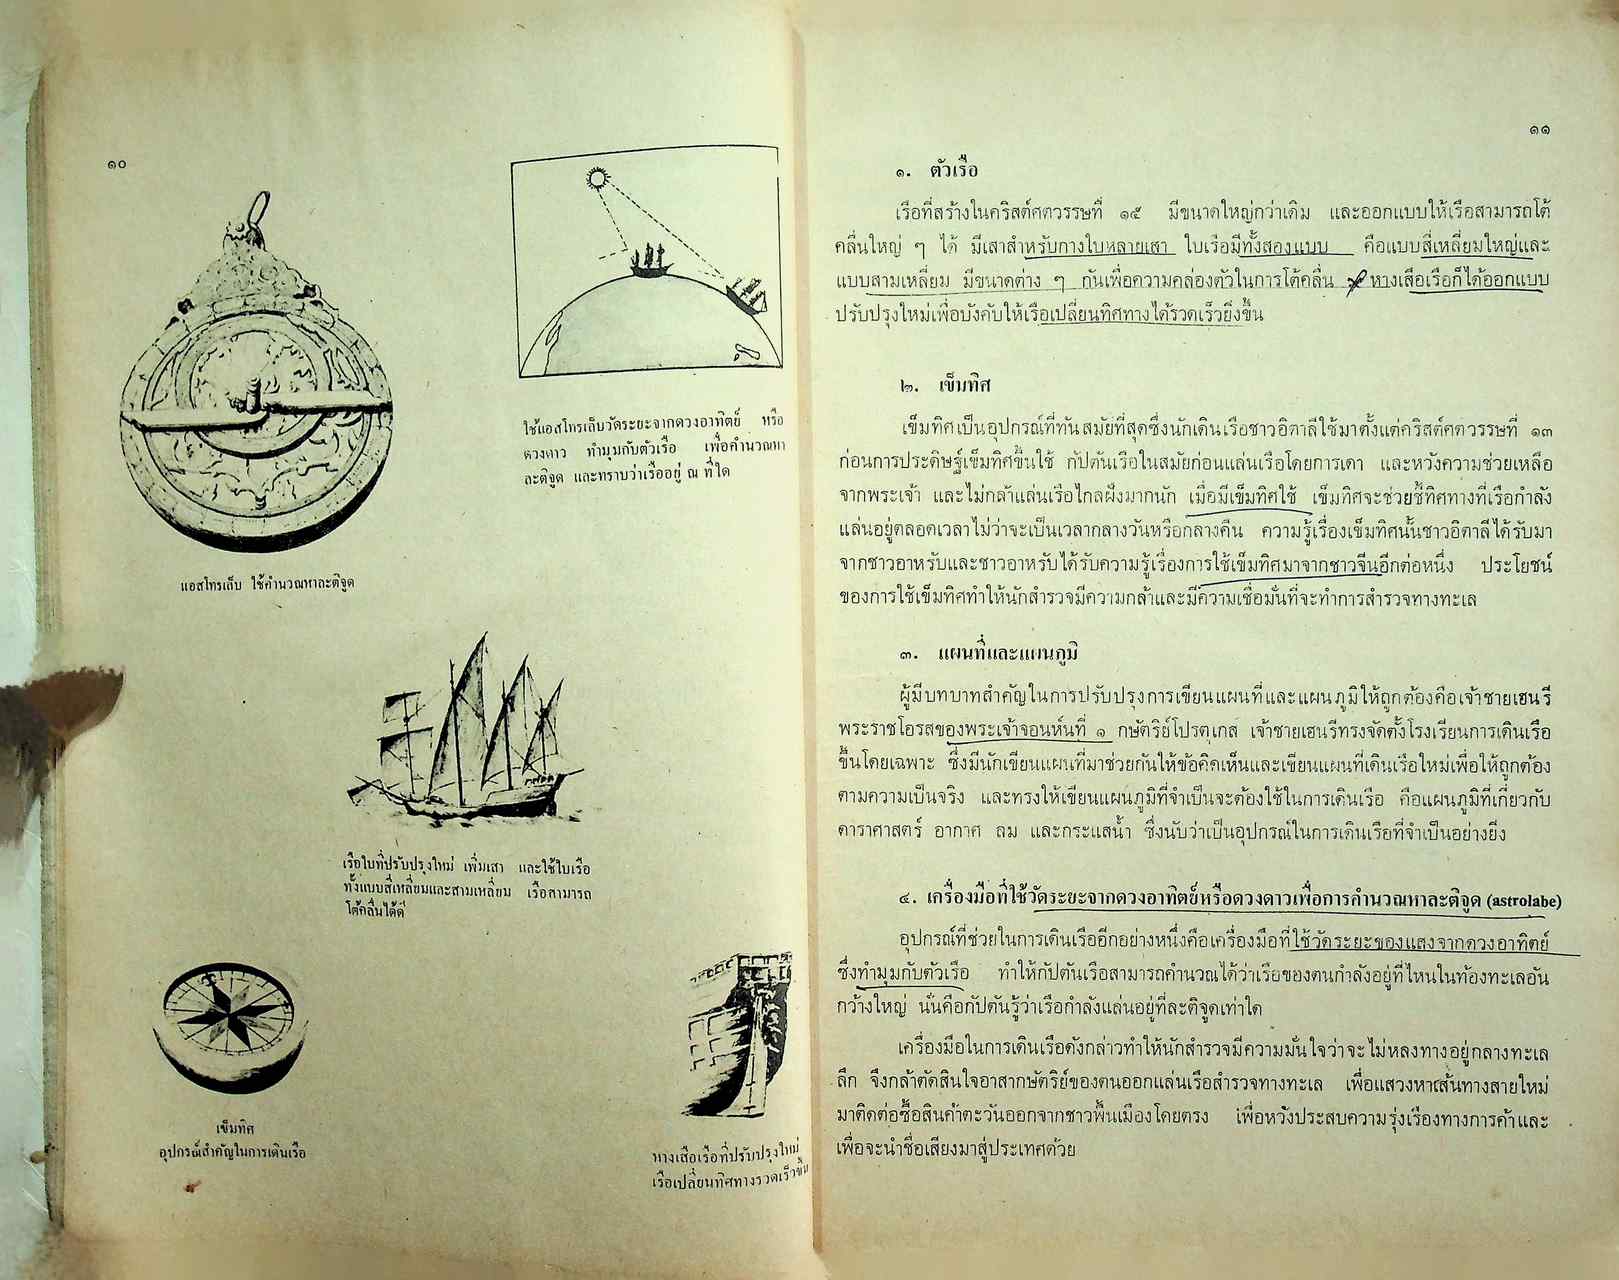 ๑๐
ใช้แอสโทรเล็บวัดระยะจากดวงอาทิตย์ หรือ
ดวงดาว ทำมุมกับตัวเรือ เพื่อคำนวณหา
ละติจูด และทราบว่าเรืออยู่ ณ ที่ใด
แอสโทรเล็บ ใช้คำนวณหาละติจูด
เรือใบที่ปรับปรุงใหม่ เพิ่มเสา และใช้ใบเรือ
ทั้งแบบสี่เหลี่ยมและสามเหลี่ยม เรือสามารถ
โต้คลื่นได้ดี
เข็มทิศ
อุปกรณ์สำคัญในการเดินเรือ
หางเสือเรือที่ปรับปรุงใหม่
เรือเปลี่ยนทิศทางรวดเร็วขึ้น
๑๑
๑. ตัวเรือ
เรือที่สร้างในคริสต์ศตวรรษที่ ๑๕ มีขนาดใหญ่กว่าเดิม และออกแบบให้เรือสามารถโต้
คลื่นใหญ่ ๆ ได้ มีเสาสำหรับกางใบหลายเสา ใบเรือมีทั้งสองแบบ คือแบบสี่เหลี่ยมใหญ่และ
แบบสามเหลี่ยม มีขนาดต่าง ๆ กันเพื่อความคล่องตัวในการโต้คลื่น หางเสือเรือก็ได้ออกแบบ
ปรับปรุงใหม่เพื่อบังคับให้เรือเปลี่ยนทิศทางได้รวดเร็วยิ่งขึ้น
๒. เข็มทิศ
เข็มทิศเป็นอุปกรณ์ที่ทันสมัยที่สุดซึ่งนักเดินเรือชาวอิตาลีใช้มาตั้งแต่คริสต์ศตวรรษที่ ๑๓
ก่อนการประดิษฐ์เข็มทิศขึ้นใช้ กัปตันเรือในสมัยก่อนแล่นเรือโดยการเดา และหวังความช่วยเหลือ
จากพระเจ้า และไม่กล้าแล่นเรือไกลฝั่งมากนัก เมื่อมีเข็มทิศใช้ เข็มทิศจะช่วยชี้ทิศทางที่เรือกำลัง
แล่นอยู่ตลอดเวลาไม่ว่าจะเป็นเวลากลางวันหรือกลางคืน ความรู้เรื่องเข็มทิศนั้นชาวอิตาลีได้รับมา
จากชาวอาหรับและชาวอาหรับได้รับความรู้เรื่องการใช้เข็มทิศมาจากชาวจีนอีกต่อหนึ่ง ประโยชน์
ของการใช้เข็มทิศทำให้นักสำรวจมีความกล้าและมีความเชื่อมั่นที่จะทำการสำรวจทางทะเล
๓. แผนที่และแผนภูมิ
ผู้มีบทบาทสำคัญในการปรับปรุงการเขียนแผนที่และแผนภูมิให้ถูกต้องคือเจ้าชายเฮนรี
พระราชโอรสของพระเจ้าจอนห์นที่ ๑ กษัตริย์โปรตุเกส เจ้าชายเฮนรีทรงจัดตั้งโรงเรียนการเดินเรือ
ขึ้นโดยเฉพาะ ซึ่งมีนักเขียนแผนที่มาช่วยกันให้ข้อคิดเห็นและเขียนแผนที่เดินเรือใหม่เพื่อให้ถูกต้อง
ตามความเป็นจริง และทรงให้เขียนแผนภูมิที่จำเป็นจะต้องใช้ในการเดินเรือ คือแผนภูมิที่เกี่ยวกับ
ดาราศาสตร์ อากาศ ลม และกระแสน้ำ ซึ่งนับว่าเป็นอุปกรณ์ในการเดินเรือที่จำเป็นอย่างยิ่ง
๔. เครื่องมือที่ใช้วัดระยะจากดวงอาทิตย์หรือดวงดาวเพื่อการคำนวณหาละติจูด (astrolabe)
อุปกรณ์ที่ช่วยในการเดินเรืออีกอย่างหนึ่งคือเครื่องมือที่ใช้วัดระยะของแสงจากดวงอาทิตย์
ซึ่งทำมุมกับตัวเรือ ทำให้กัปตันเรือสามารถคำนวณได้ว่าเรือของตนกำลังอยู่ที่ไหนในท้องทะเลอัน
กว้างใหญ่ นั่นคือกัปตันรู้ว่าเรือกำลังแล่นอยู่ที่ละติจูดเท่าใด
เครื่องมือในการเดินเรือดังกล่าวทำให้นักสำรวจมีความมั่นใจว่าจะไม่หลงทางอยู่กลางทะเล
ลึก จึงกล้าตัดสินใจอาสากษัตริย์ของตนออกแล่นเรือสำรวจทางทะเล เพื่อแสวงหาเส้นทางสายใหม่
มาติดต่อซื้อสินค้าตะวันออกจากชาวพื้นเมืองโดยตรง เพื่อหวังประสบความรุ่งเรืองทางการค้าและ
เพื่อจะนำชื่อเสียงมาสู่ประเทศด้วย